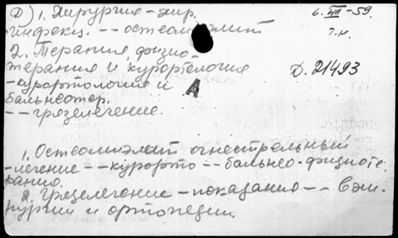 Ⓓ) 1. Хирургия-хир. 6.VIII-59.
инфекц. -- остеомиэлит 7.н.
2. Терапия физио-
терапия и курортология Д. 21493
-курортология и А
бальнеотер.
-- грязелечение.
1. Остеомиэлит огнестрельный
-лечение -- курорто -- бальнео-физиоте-
рапия.
2. Грязелечение - показания -- в хи-
рургии и ортопедии